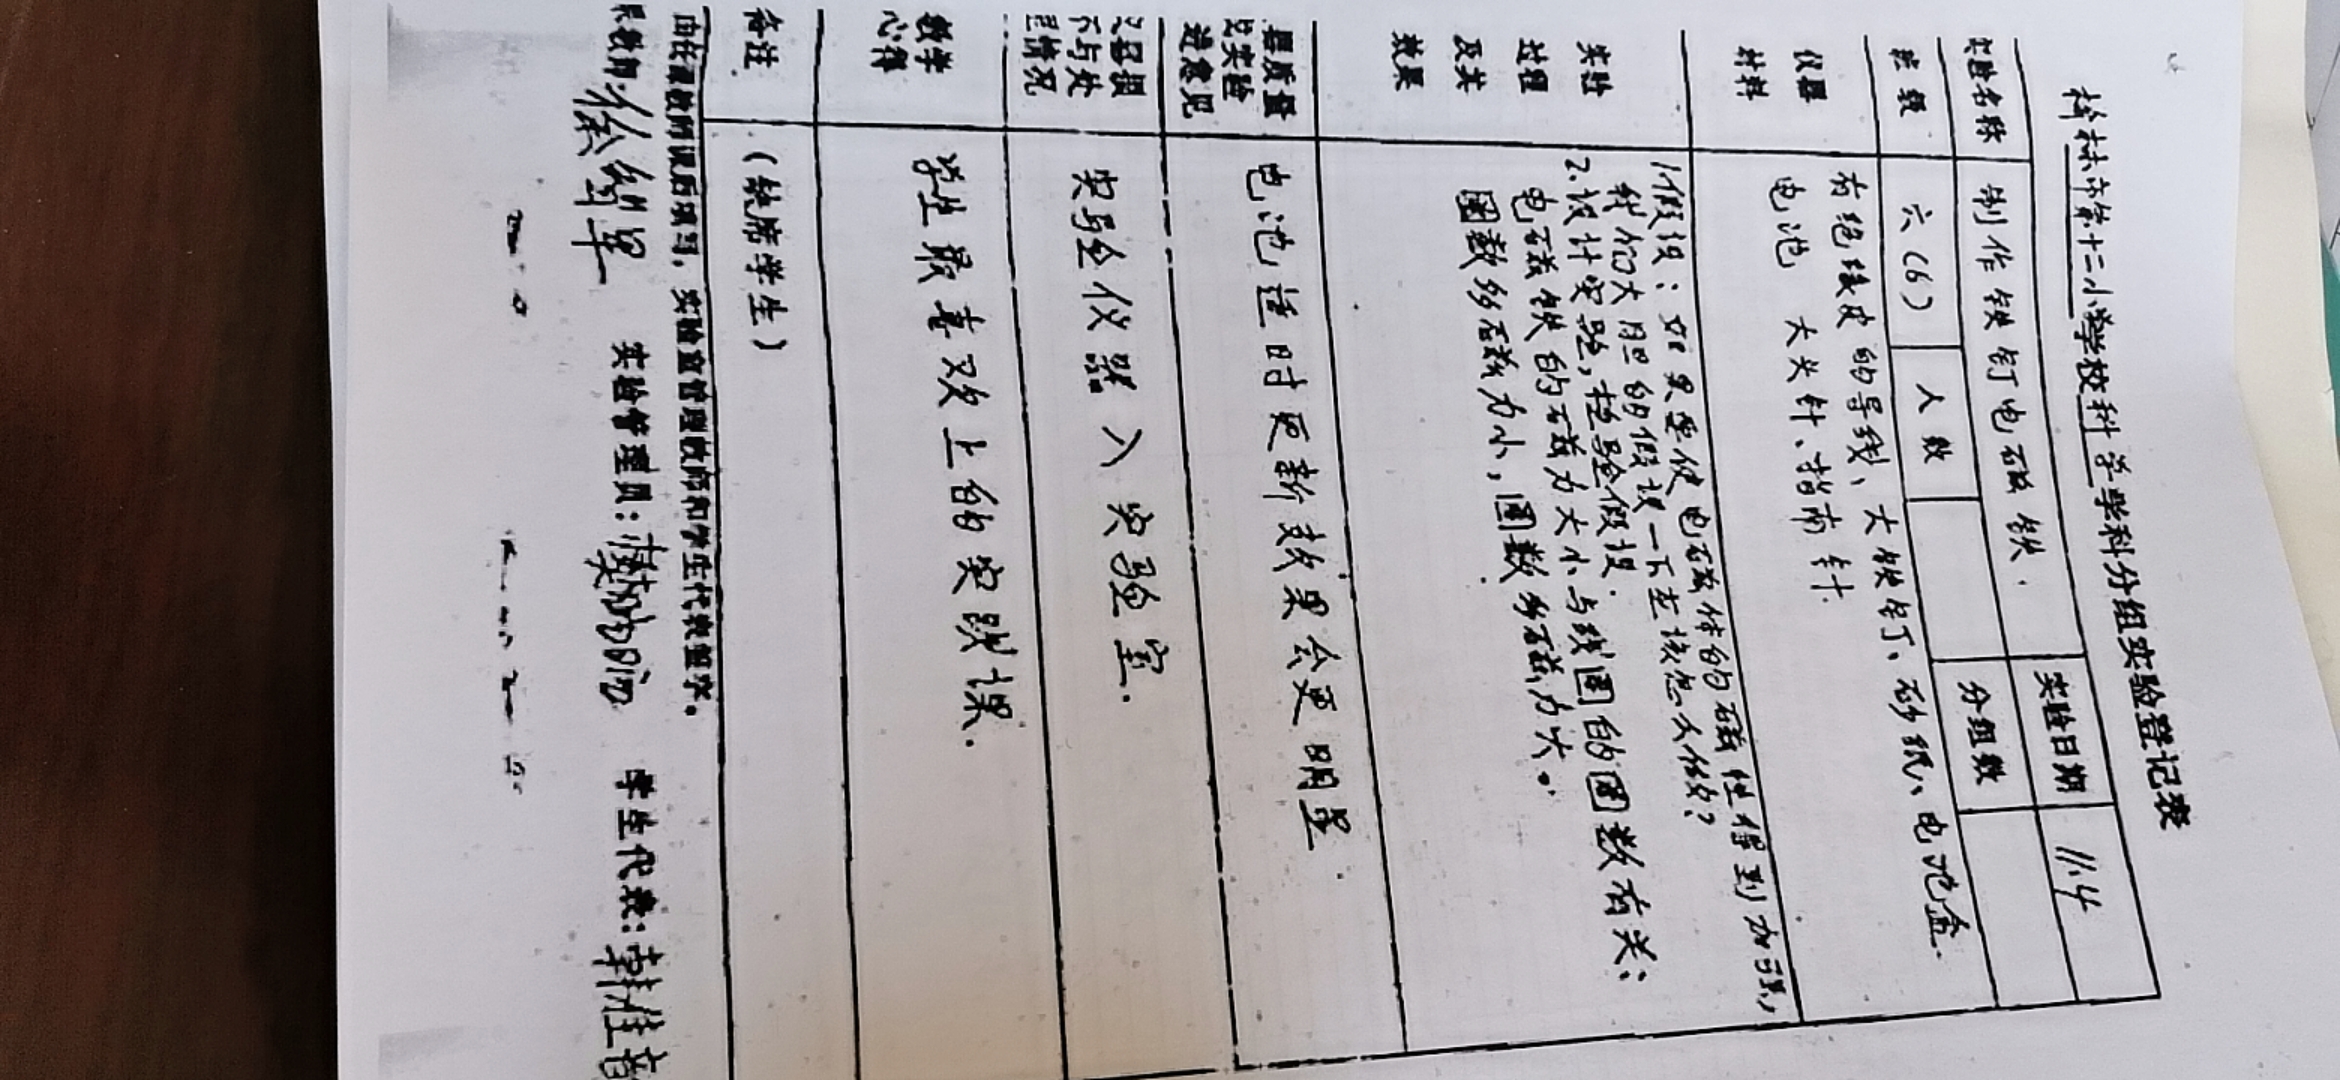 榆林市第十二小学校科学学科分组实验登记表
实验名称 制作铁钉电磁铁. 实验日期 11.4
班级 六(6) 人数 分组数
仪器材料 有绝缘皮的导线、大铁钉、砂纸、电池盒.
电池 大头针、指南针
实验过程及其效果
1.假设:如果要使电磁体的磁性得到加强,
我们大胆的假设一下应该怎么做?
2.设计实验,检验假设.
电磁铁的磁力大小与线圈的圈数有关:
圈数少磁力小,圈数多磁力大。
器质量及实验进意见 电池适时更新效果会更明显.
仪器损坏与处理情况 实验仪器入实验室.
教学心得 学生最喜欢上的实践课.
备注 (缺席学生)
由任课教师课后填写,实验室管理教师和学生代表签字。
课教师: 实验管理员: 学生代表: